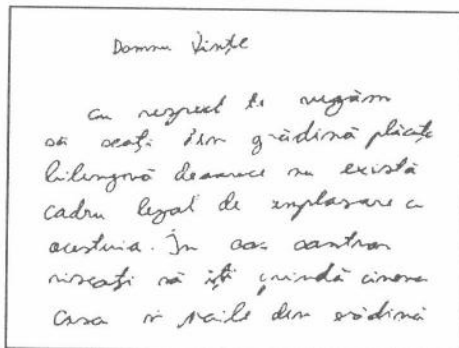 Domnu Vinţe
cu respect te rugăm
să scoţi din grădină plăcuţa
bilingvă deoarece nu există
cadru legal de amplasare a
acestuia. În caz contrar
riscaţi să îşti prindă cineva
casa şi din grădină